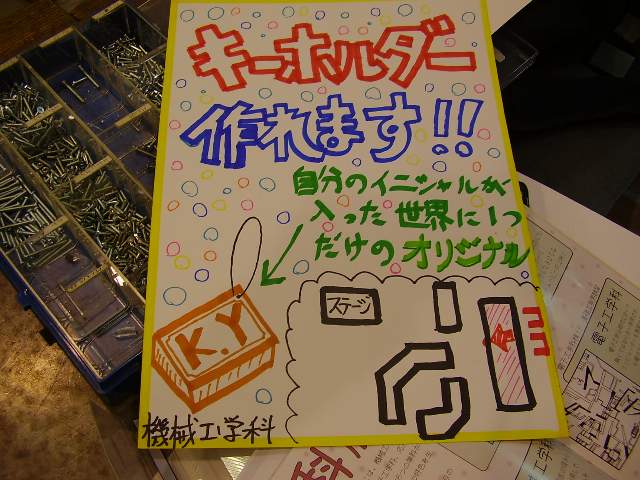 キーホルダー
作れます!!
自分のイニシャルが
入った世界に1つ
だけのオリジナル
ステージ
K.Y
機械工学科
電子工学科